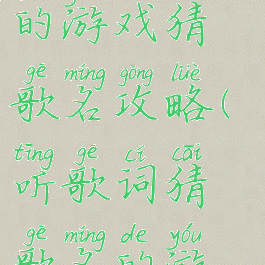 的游戏猜
gē míng gōng lüè
歌名攻略(
tīng gē cí cāi
听歌词猜
gē míng de yóu
歌名的游